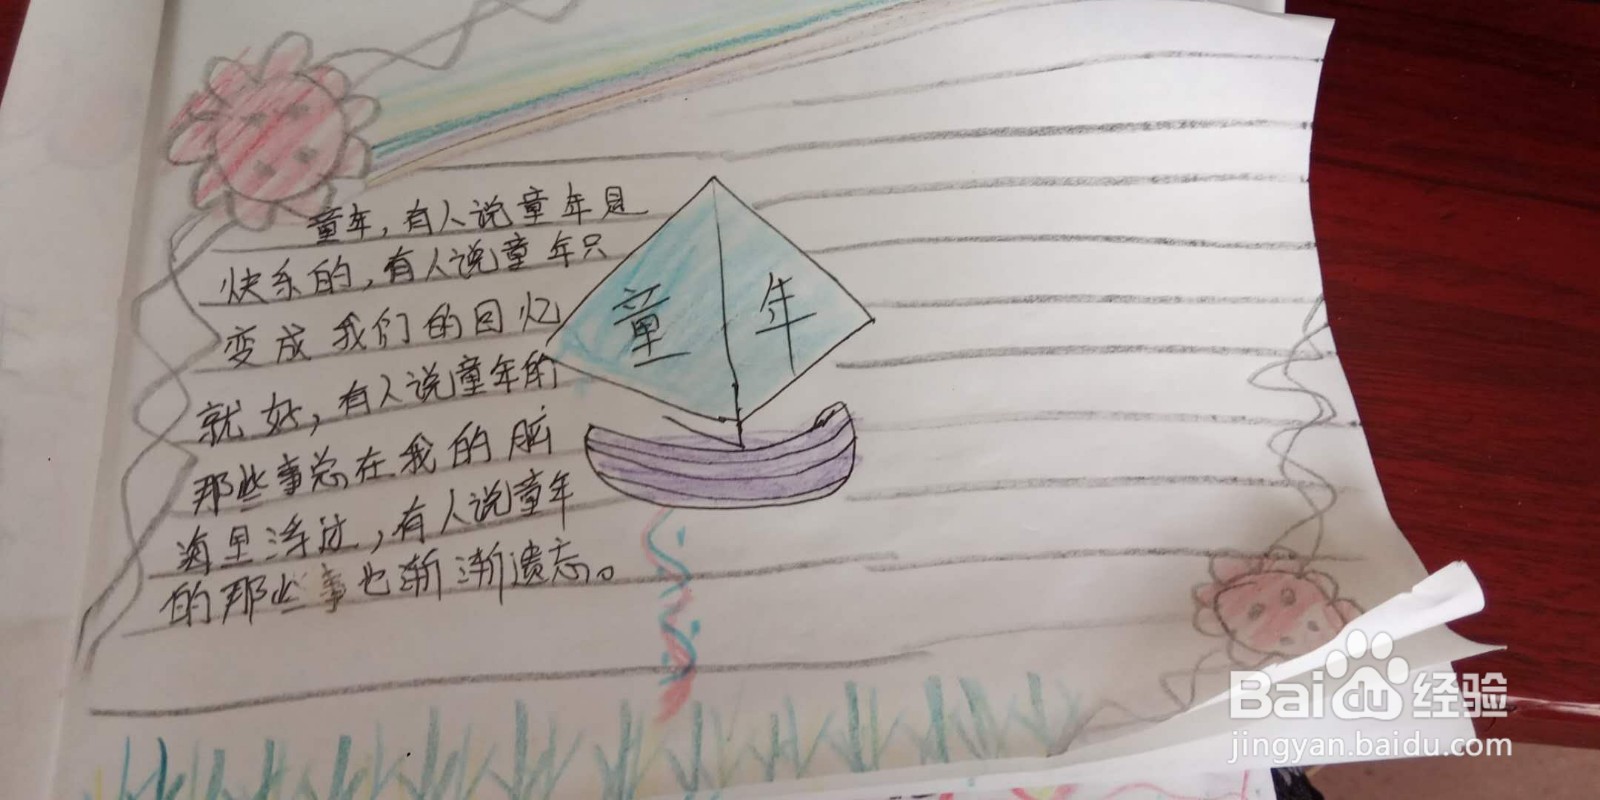 童年，有人说童年是
快乐的，有人说童年只
变成我们的回忆
就好，有人说童年的
那些事总在我的脑
海里浮过，有人说童年
的那些事也渐渐遗忘。
童年
Baidu 经验
jingyan.baidu.com